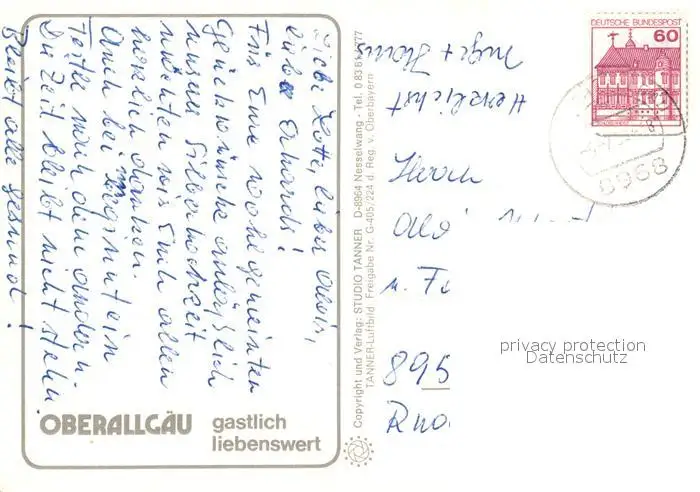 Liebe Lotte, lieber Alois,
liebe Erhards!
Für Eure wohlgemeinten
Glückwünsche anläßlich
unserer Silberhochzeit
möchten wir Euch allen
herzlich danken.
Auch bei uns ein
Fest nach dem andern.
Die Zeit bleibt nicht stehn.
Bleibt alle gesund!
Herzlichst
Inge + Hans
OBERALLGÄU
gastlich
liebenswert
Copyright und Verlag: STUDIO TANNER D-8964 Nesselwang - Tel. 0 83 61
TANNER-Luftbild Freigabe Nr. G-405/224 d. Reg. v. Oberbayern
DEUTSCHE BUNDESPOST
60
8968
Herrn
Aloi
u. Fa
895
privacy protection
Datenschutz